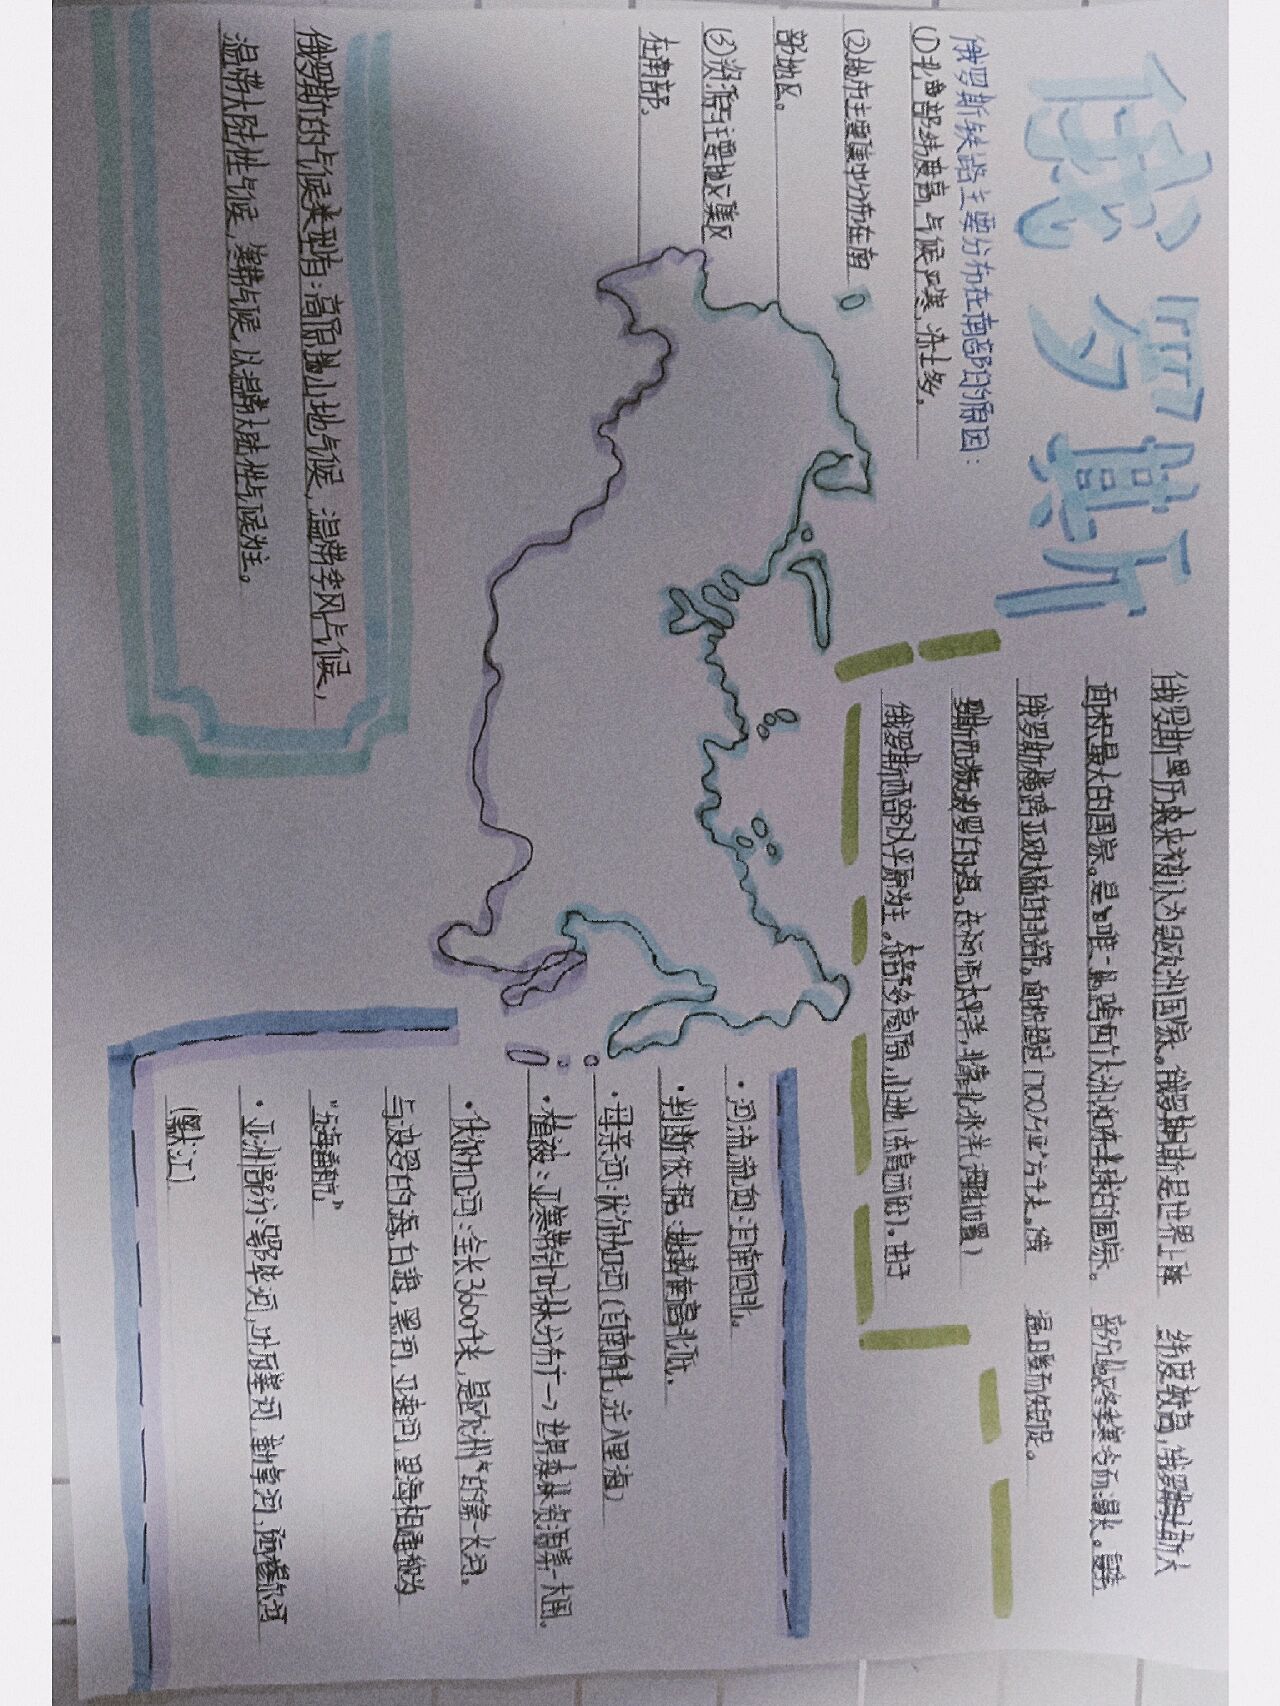 俄罗斯
俄罗斯铁路主要分布在南部的原因:
(1)北部纬度高,气候严寒,冻土多。
(2)城市主要集中分布在南
部地区。
(3)资源主要地区集
在南部。
俄罗斯历来被认为是欧洲国家。俄罗斯是世界上
面积最大的国家。是
俄罗斯横跨亚欧大陆的北部,面积超过1700万平方千米。俄
俄罗斯西部以平原为主。东部多高原,山地(东高西低)。由于
纬度较高,俄罗斯大
部分地区冬季寒冷而漫长。夏季
温暖而短促。
俄罗斯的气候类型有:高原山地气候,温带季风气候,
温带大陆性气候,寒带气候,以温带大陆性气候为主。
·河流流向:自南向北。
·判断依据:地势南高北低。
·母亲河:伏尔加河(自南向北,注入里海)
·植被:亚寒带针叶林分布广→世界森林资源第一大国。
·伏尔加河:全长3600千米,是欧洲的第一长河。
与波罗的海,白海,黑河,亚速河,里海相通称为
"五海通航"
·亚洲部分:鄂毕河,叶尼塞河,勒拿河,阿穆尔河
(黑龙江)